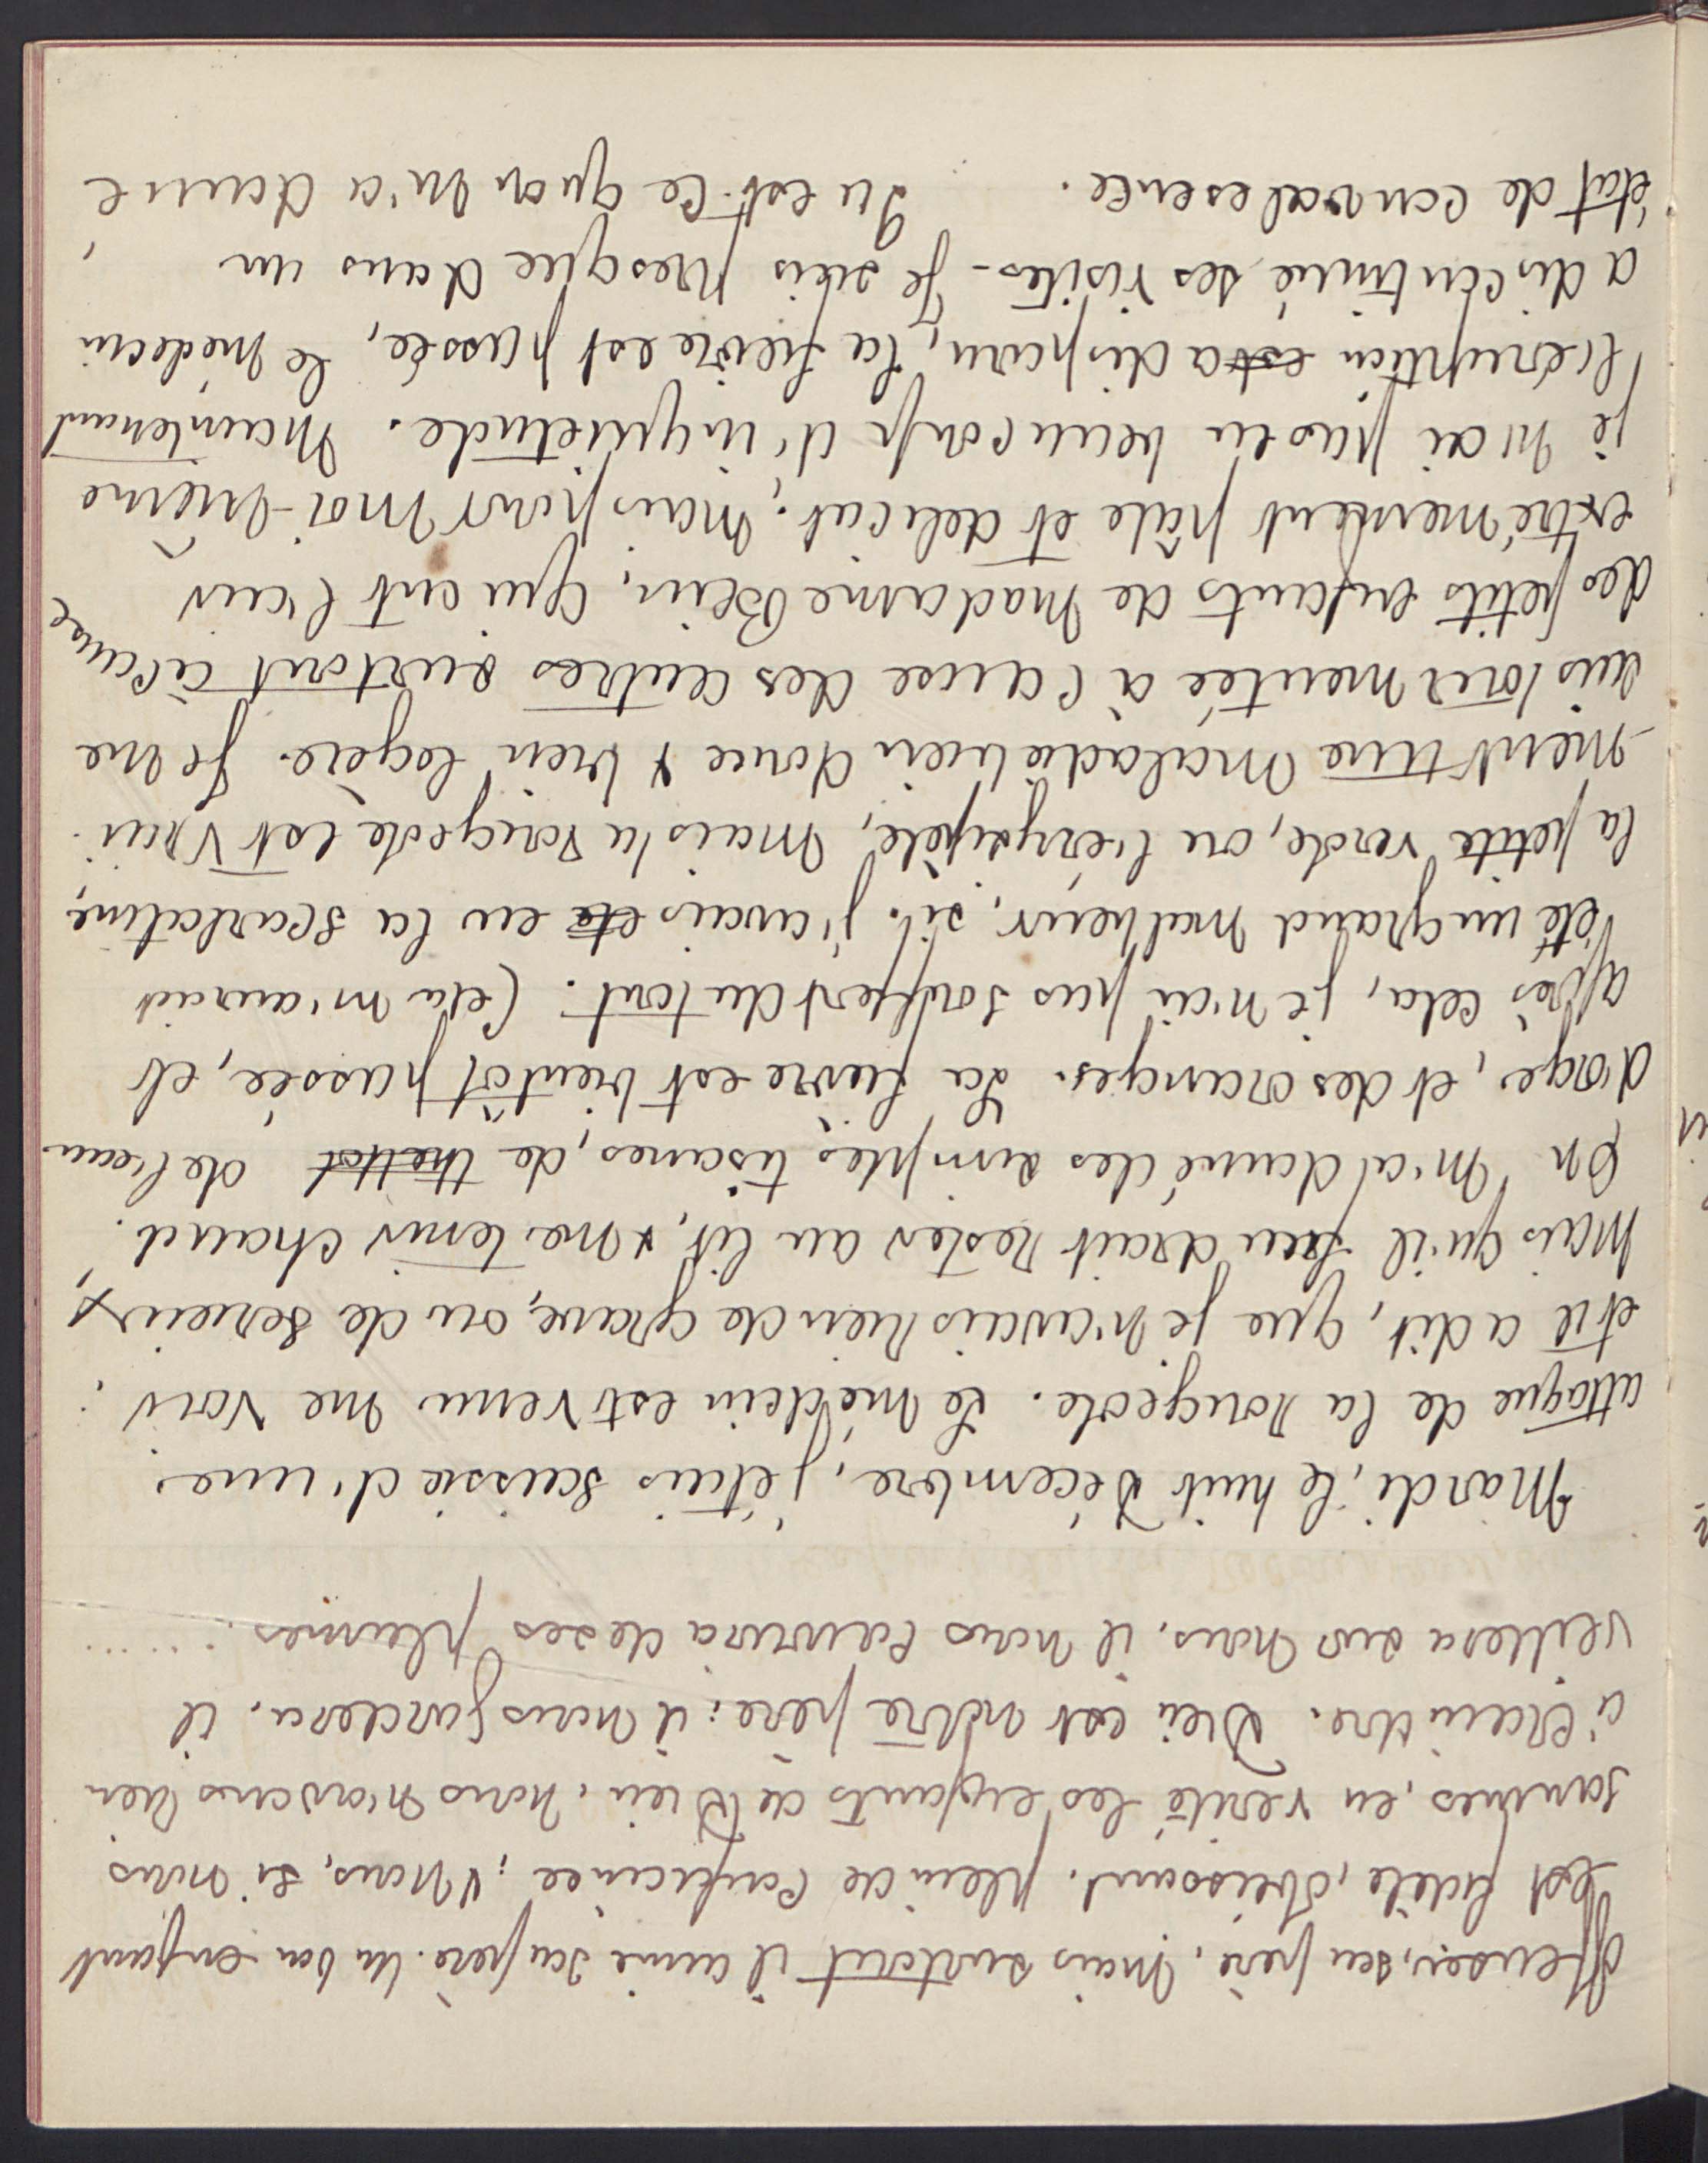 offenser, son père, mais surtout il aime son père. Un bon enfant
est fidèle, obéissant, plein de confiance; & nous, si nous
sommes, en verité les enfants de Dieu, nous n'avons rien
à craindre. Dieu est nôtre père: il nous gardera, il
veillera sur nous, il nous couvrira de ses plumes .....
Mardi, le huit Décembre, j'étais saissie d'une
attaque de la rougeole. Le médecin est venu me voir,
et il a dit, que je n'avais rien de grave, ou de serieux,
mais qu'il faudrait rester au lit, & me tenir chaud.
On m'a donné des simples tisanes, de de l'eau
d'orge, et des oranges. La fievre est bientôt passée, et
après cela, je n'ai pas souffert du tout. Cela m'aurait
été un grand malheur, si j'avais eté eu la scarlatine,
la petite verole, ou l'erysipèle, mais la rougeole est vrai-
-ment une maladie bien douce & bien legère. Je me
suis tourmentée à cause des autres surtout à cause
des petits enfants de Madame Blin, qui ont l'air
extrêmement pâle et delicat; mais pour moi-même
je n'ai pas eu beaucoup d'inquietude. Maintenant
l'éruption est a disparu, la fievre est passée, le médecin
a discontinué ses visites - Je suis presque dans un
état de convalesence. Qu'est-ce qu'on m'a donné